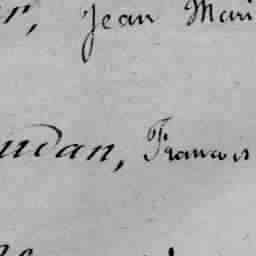 r, Jean Mari
udan, Francois